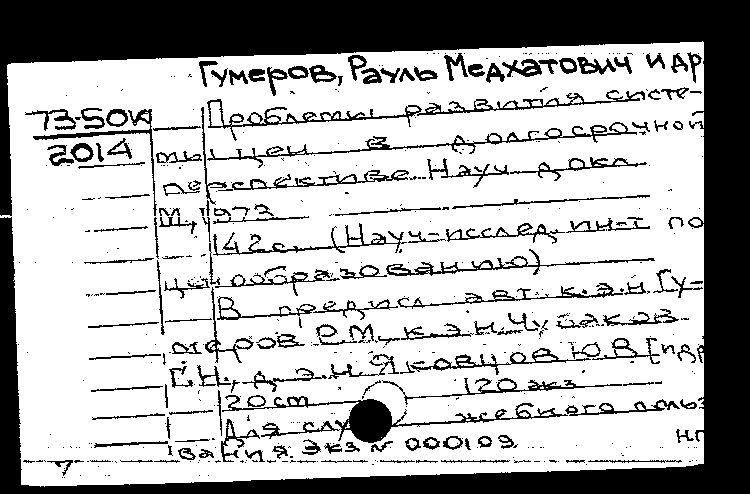 Гумеров, Рауль Медхатович и др
73-50к
2014
Проблемы развития систе-
мы цен в долгосрочной
перспективе. Науч. докл.
М., 1973
142с. (Науч.-исслед. ин-т по
ценообразованию)
В предисл. авт. к.э.н. Гу-
меров Р.М., к.э.н. Чубаков
Г.Н., д.э.н. Яковцов Ю.В [и др
20 cm 120 экз
Для служебного польз
вания. Экз № 000109